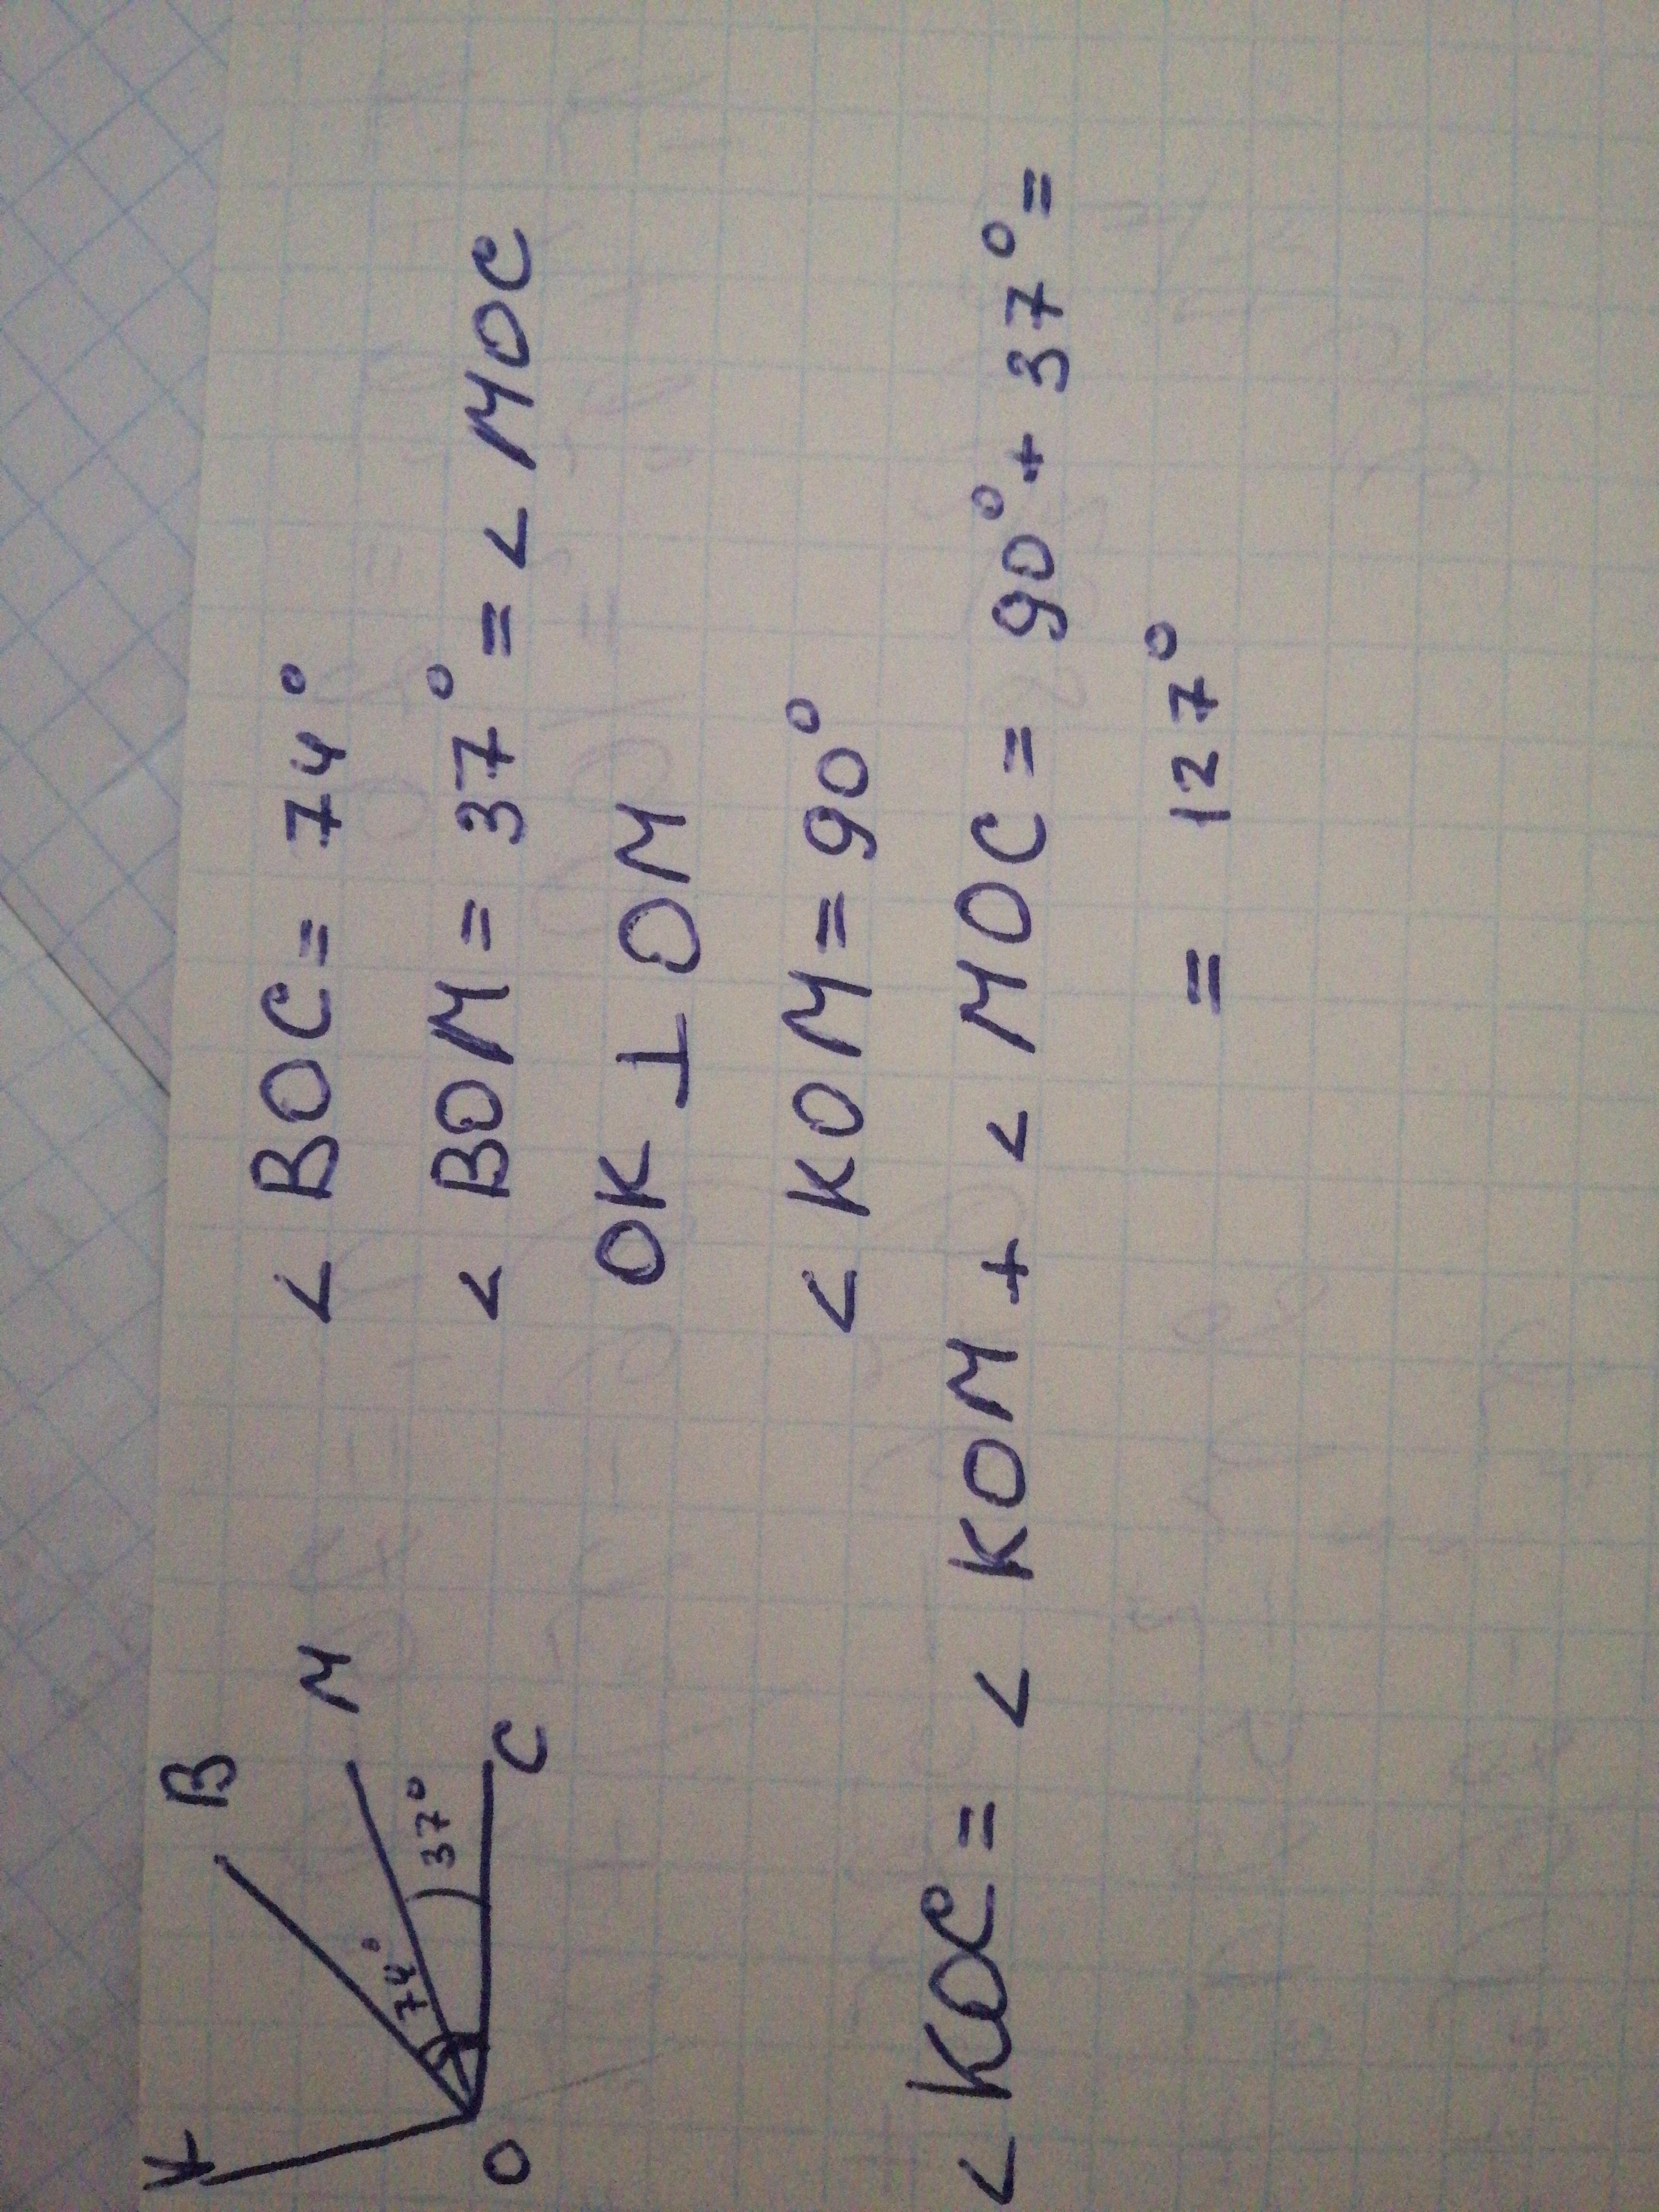 K
B
M
C
O
74°
37°
< BOC = 74°
< BOM = 37° = < MOC
OK ⊥ OM
< KOM = 90°
< KOC = < KOM + < MOC = 90° + 37° =
= 127°